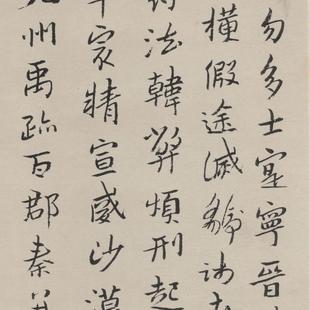 勿多士寔寧晉
橫假途滅虢踐土
法韓弊煩刑起
㝡精宣威沙漠
州禹跡百郡秦并